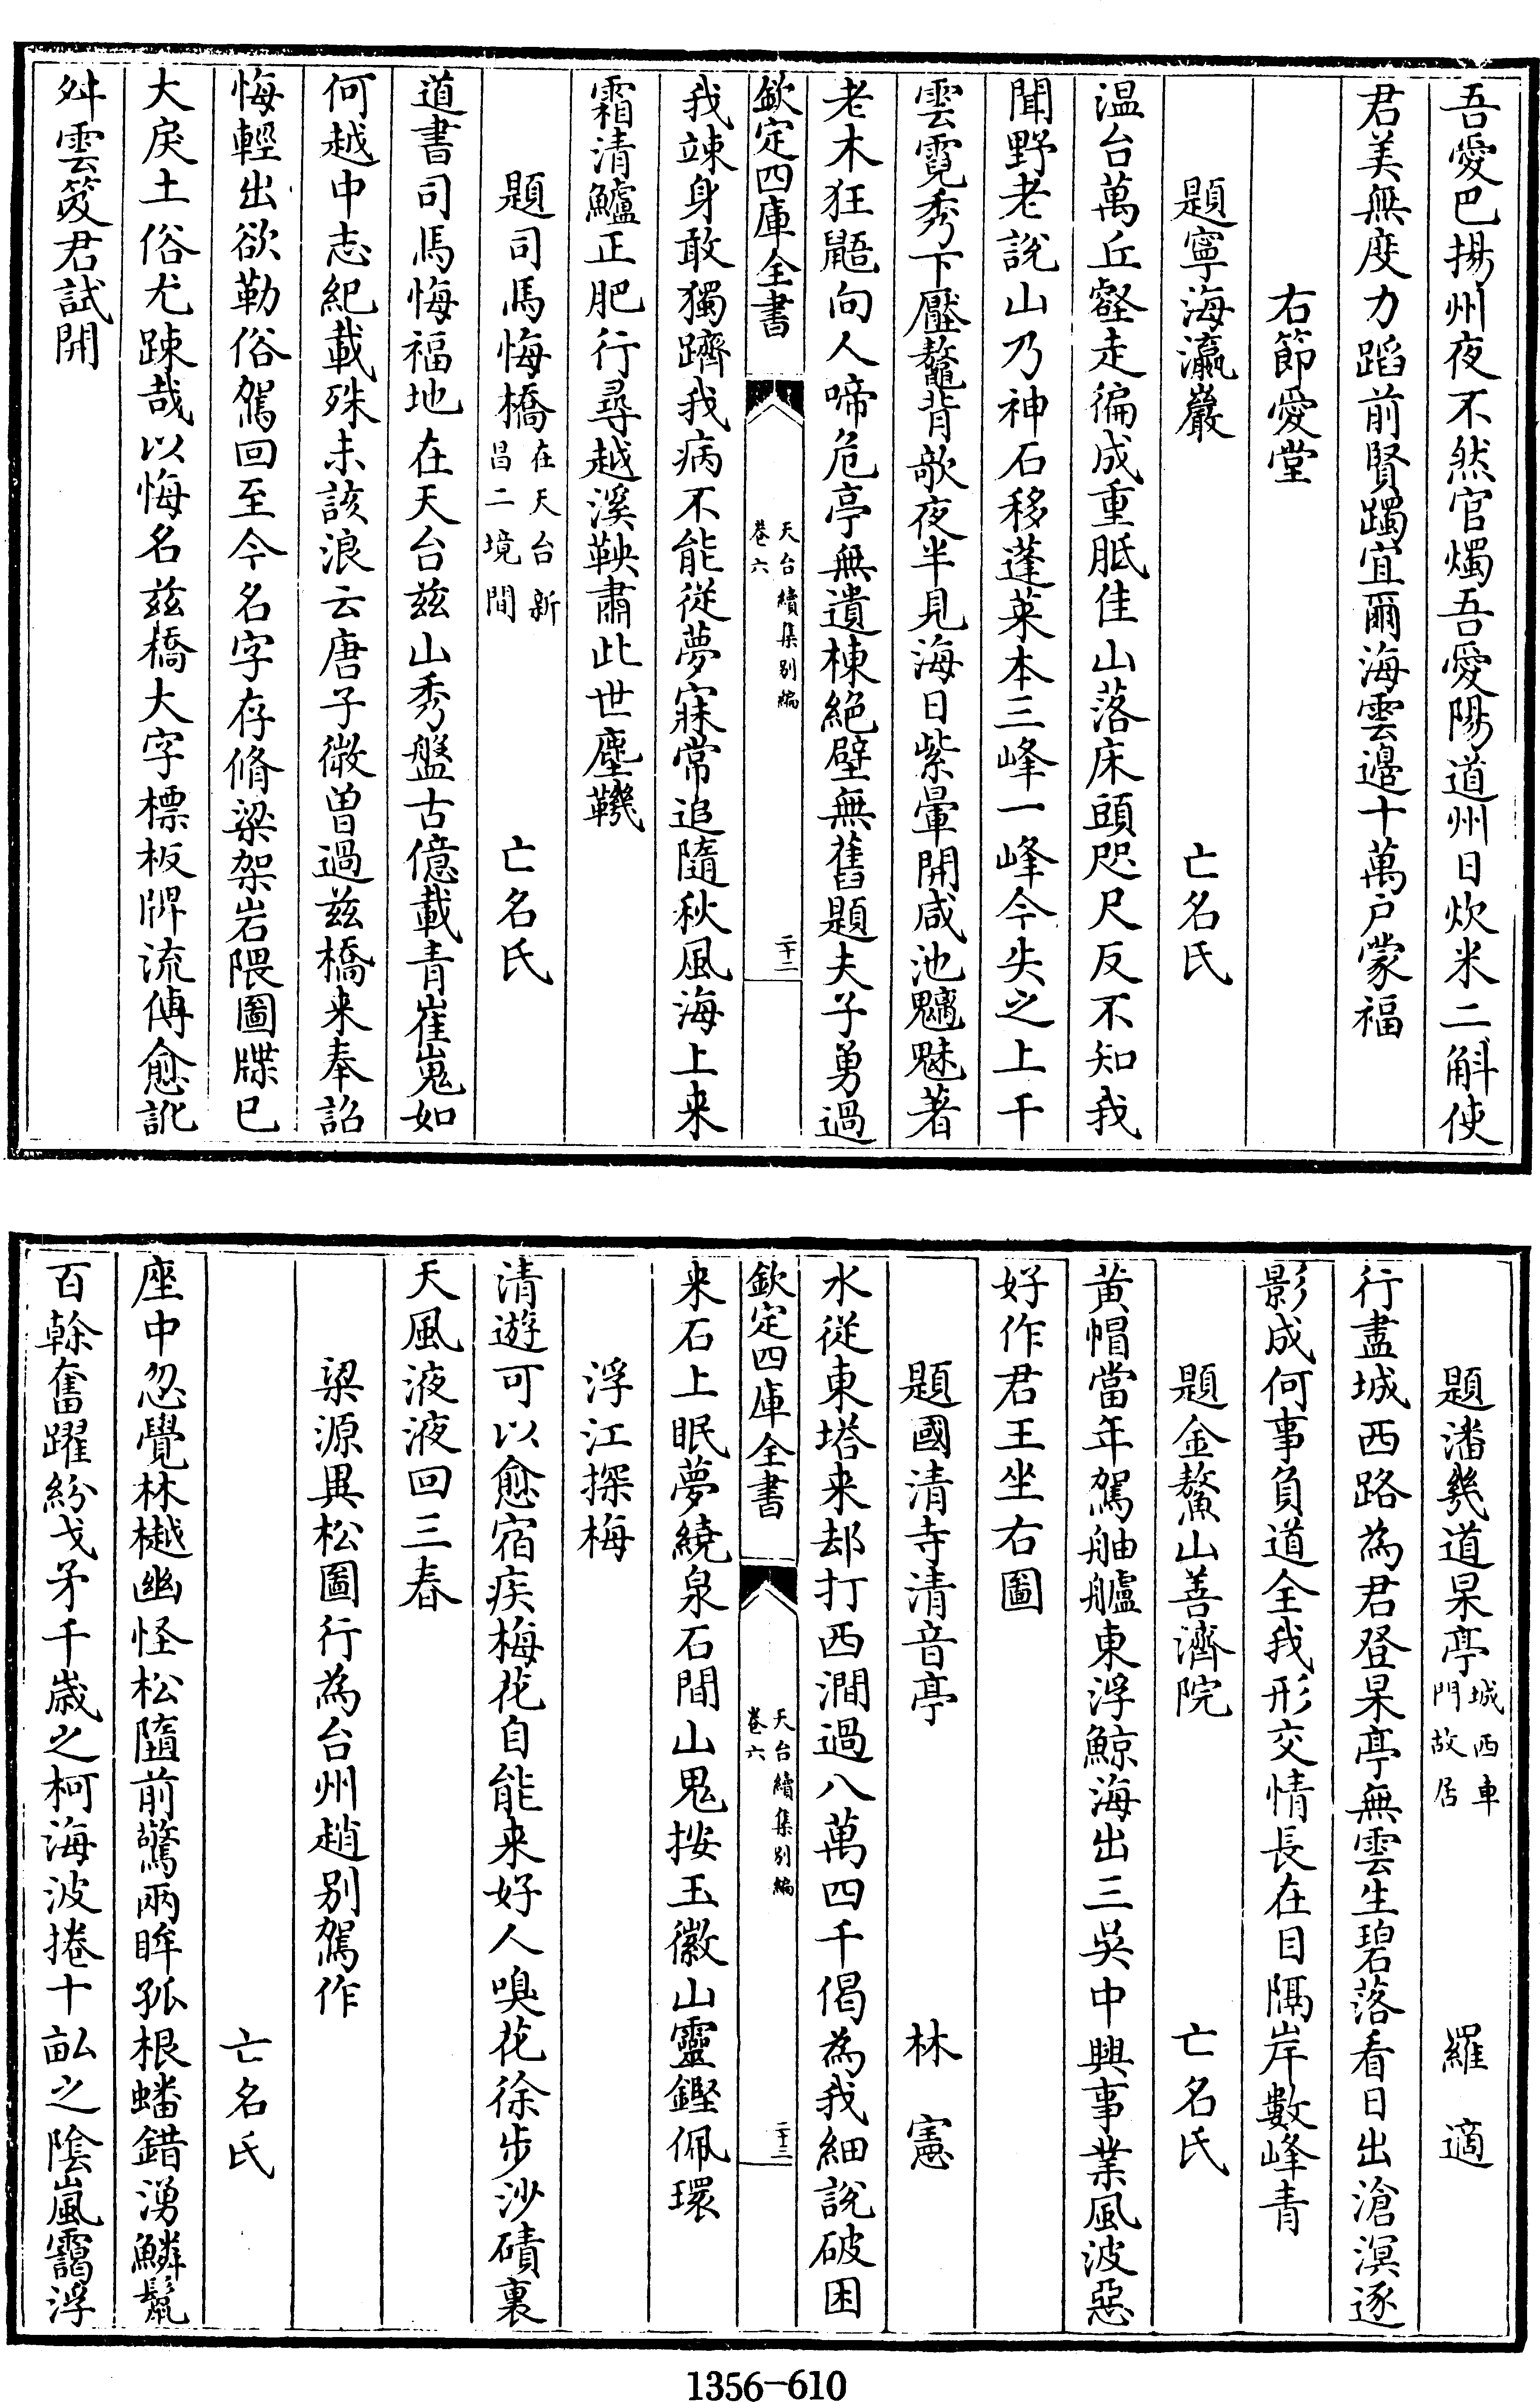 吾愛巴揚州夜不然官燭吾愛陽道州日炊米二斛使
君美無度力蹈前賢躅宜爾海雲邊十萬戶蒙福
右節愛堂
題寧海瀛巖
亡名氏
温台萬丘壑走徧成重胝佳山落床頭咫尺反不知我
聞野老說山乃神石移蓬萊本三峰一峰今失之上干
雲霓秀下壓鼇背欹夜半見海日紫暈開咸池魑魅著
老木狂鼯向人啼危亭無遺棟絕壁無舊題夫子勇過
欽定四庫全書
天台續集別編
卷六
二十二
我竦身敢獨躋我病不能從夢寐常追隨秋風海上来
霜清鱸正肥行尋越溪鞅肅此世塵鞿
題司馬悔橋在天台新
昌二境間
亡名氏
道書司馬悔福地在天台兹山秀盤古億載青崔嵬如
何越中志紀載殊未該浪云唐子微曽過兹橋来奉詔
悔輕出欲勒俗駕回至今名字存脩梁架岩隈圖牒已
大戾土俗尤踈哉以悔名兹橋大字標板牌流傅愈訛
舛雲笈君試開
題潘㡬道杲亭城西車
門故居
羅適
行盡城西路為君登杲亭無雲生碧落看日出滄溟逐
影成何事負道全我形交情長在目隔岸數峰青
題金鰲山善濟院
亡名氏
黄帽當年駕舳艫東浮鯨海出三吳中興事業風波惡
好作君王坐右圖
題國清寺清音亭
林憲
水從東塔来却打西澗過八萬四千偈為我細說破困
欽定四庫全書
天台續集別編
卷六
二十三
来石上眠夢繞泉石間山鬼按玉徽山靈鏗佩環
浮江探梅
清遊可以愈宿疾梅花自能来好人嗅花徐步沙磧裏
天風液液回三春
梁源異松圖行為台州趙別駕作
亡名氏
座中忽覺林樾幽怪松墮前驚兩眸孤根蟠錯湧鱗鬛
百榦奮躍紛戈矛千歲之柯海波捲十畝之陰嵐靄浮
1356-610